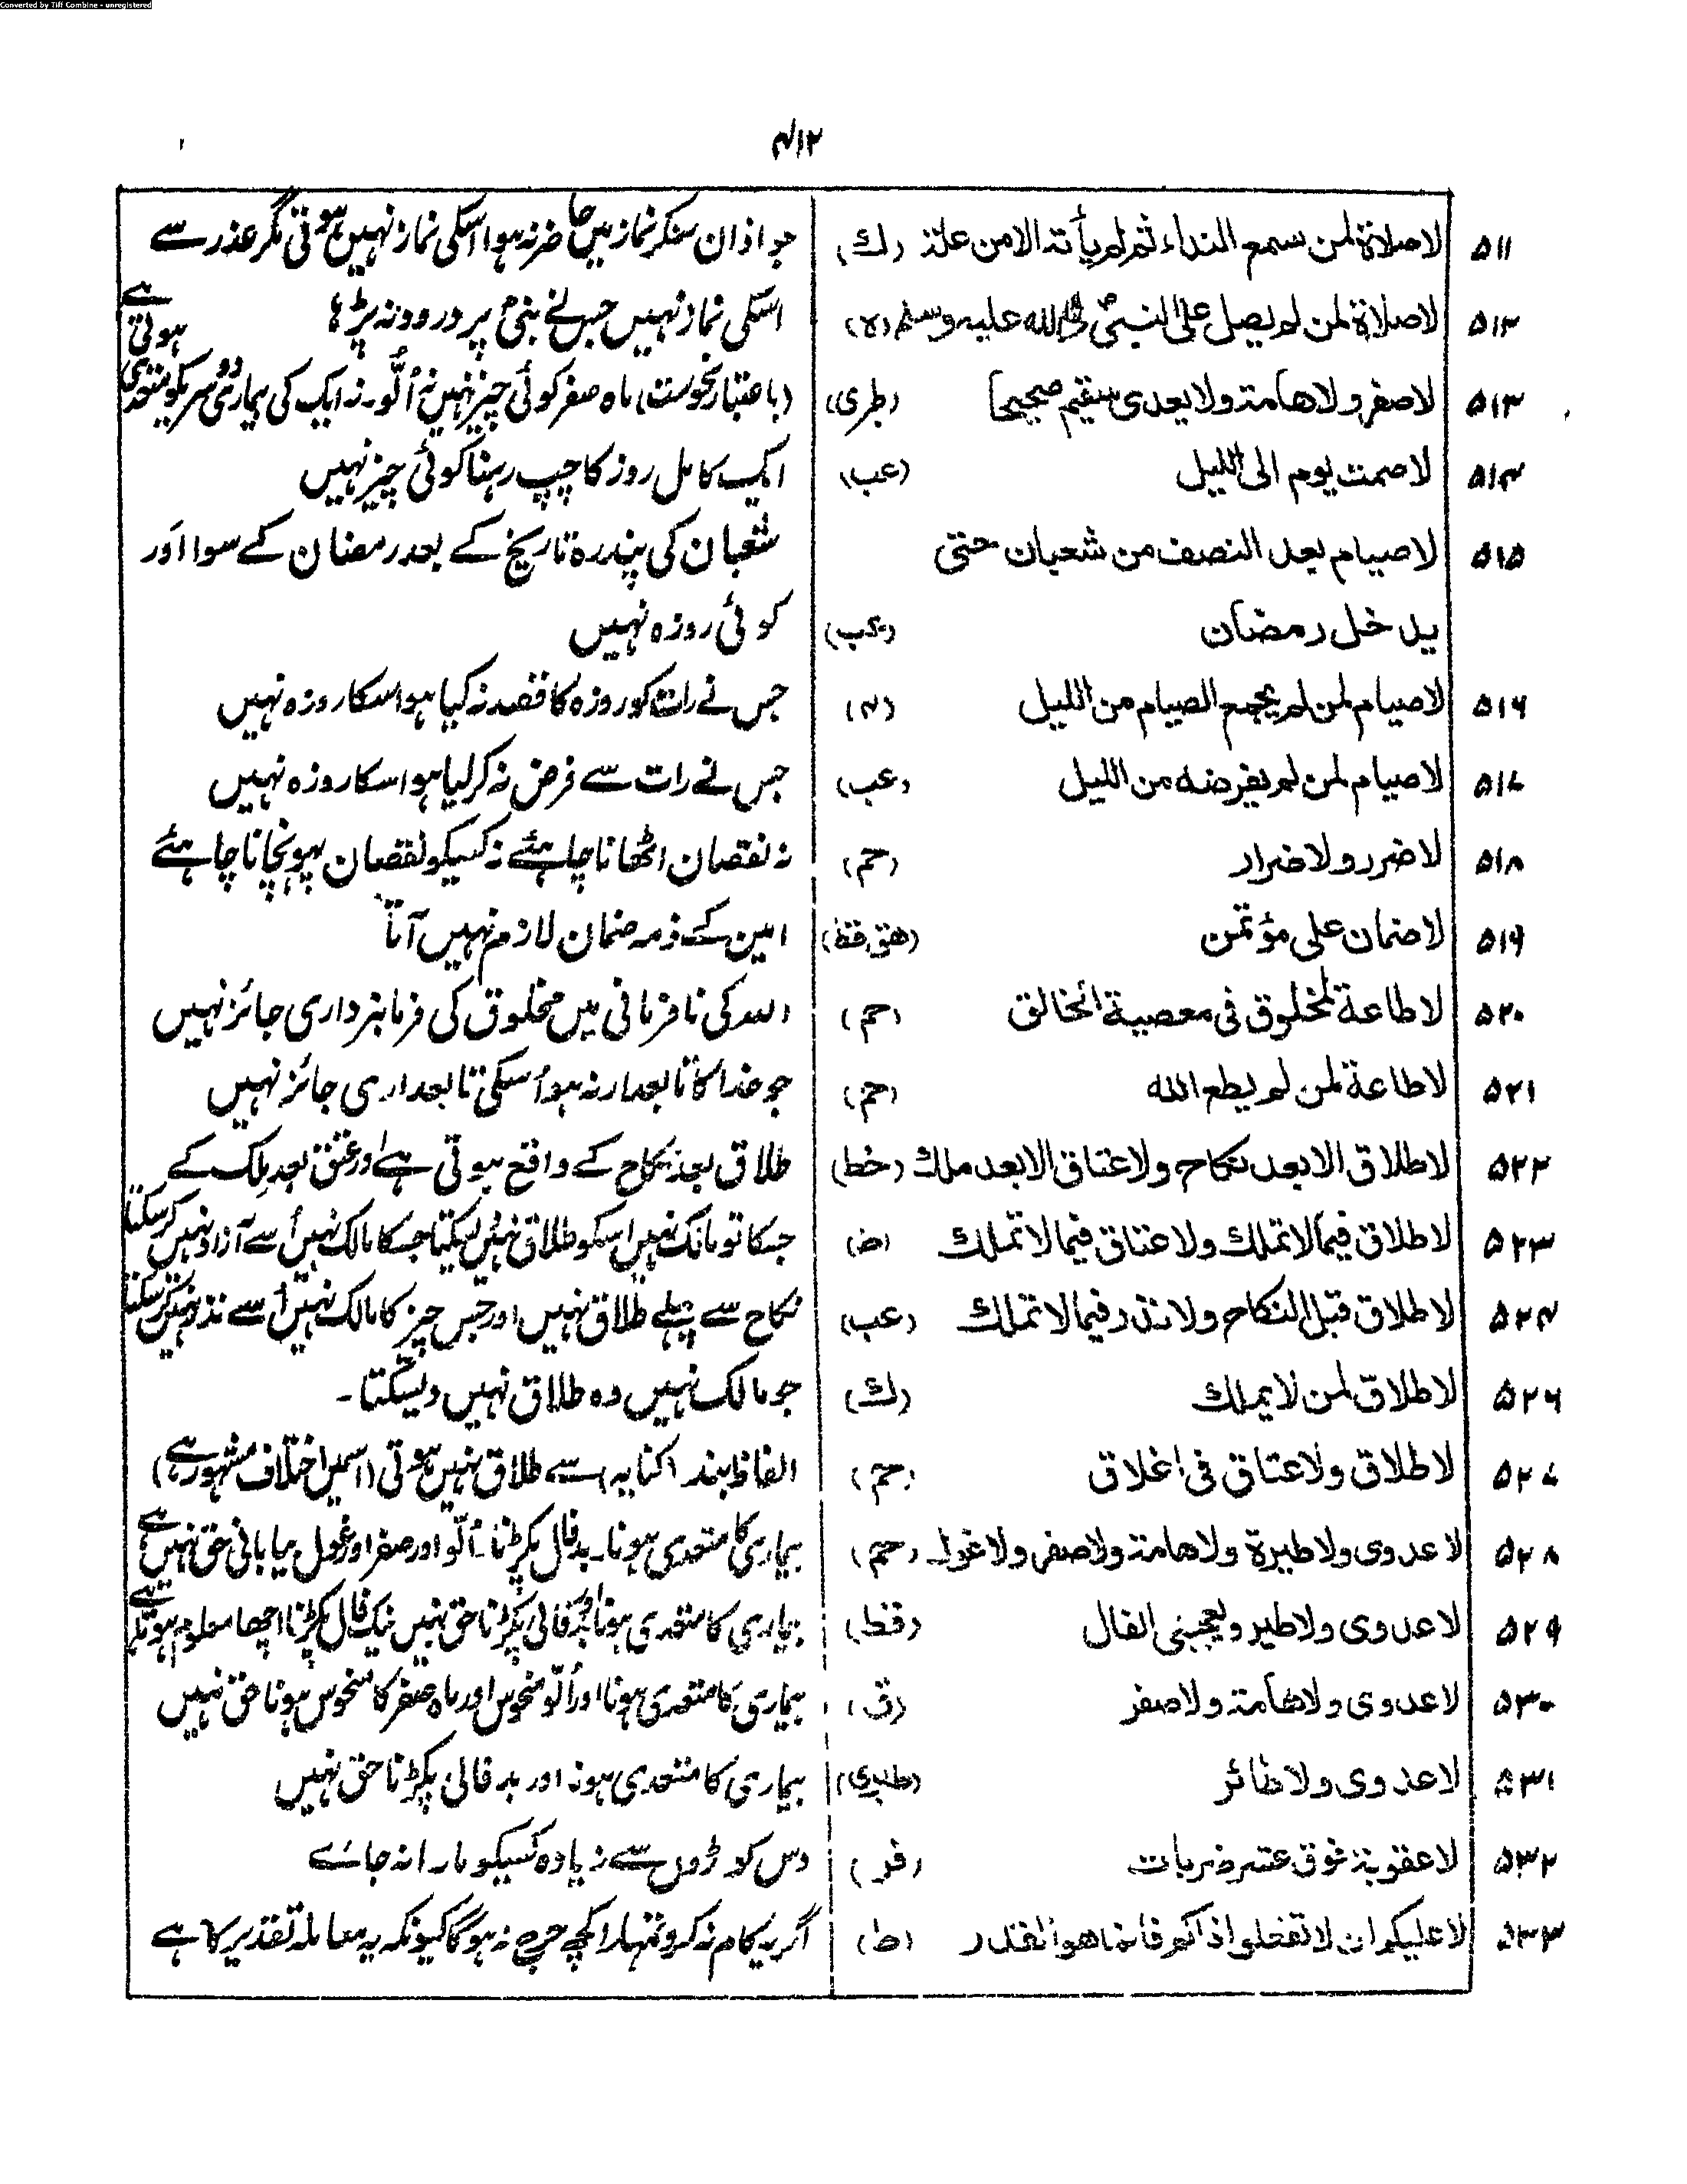 Converted by Tiff Combine - unregistered
۴۱۲
۵۱۱ لا صلاة لمن سمع النداء ثم لم یأته الا من علة (ك) جو اذان سنکر نماز میں حاضر نہ ہوا اسکی نماز نہیں ہوتی مگر عذر سے ہوتی ہے
۵۱۲ لا صلاة لمن لم یصل علی النبی صلی الله علیه وسلم (ه) اسکی نماز نہیں جس نے نبیؐ پر درود نہ پڑھا
۵۱۳ لا صفر ولا هامة ولا یعدی سقیم صحیحا (طبری) (باعتبار نحوست) ماہ صفر کوئی چیز نہیں نہ اُلّو۔ نہ ایک کی بیماری دوسریکو متعدی
۵۱۴ لا صمت یوم الی اللیل (عب) ایک کامل روز کا چپ رہنا کوئی چیز نہیں
۵۱۵ لا صیام بعد النصف من شعبان حتی شعبان کی پندرہ تاریخ کے بعد رمضان کے سوا اَور
یدخل رمضان (عب) کوئی روزہ نہیں
۵۱۶ لا صیام لمن لم یجمع الصیام من اللیل (ن) جس نے رات کو روزہ کا قصد نہ کیا ہو اسکا روزہ نہیں
۵۱۷ لا صیام لمن لم یفرضه من اللیل (عب) جس نے رات سے فرض نہ کرلیا ہو اسکا روزہ نہیں
۵۱۸ لا ضرر ولا ضرار (حم) نہ نقصان اٹھانا چاہئے نہ کسیکو نقصان پہونچانا چاہئے
۵۱۹ لا ضمان علی مؤتمن (هق قط) امین کے ذمہ ضمان لازم نہیں آتا
۵۲۰ لا طاعة لمخلوق فی معصیة الخالق (حم) اللہ کی نافرمانی میں مخلوق کی فرمانبرداری جائز نہیں
۵۲۱ لا طاعة لمن لم یطع الله (حم) جو خدا کا تابعدار نہ ہو اُسکی تابعداری جائز نہیں
۵۲۲ لا طلاق الا بعد نکاح ولا عتاق الا بعد ملك (خط) طلاق بعد نکاح کے واقع ہوتی ہے اور عتق بعد مِلک کے
۵۲۳ لا طلاق فیما لا تملك ولا عتاق فیما لا تملك (ض) جسکا تو مالک نہیں اسکو طلاق نہیں دیسکتا جسکا مالک نہیں اُسے آزاد نہیں کرسکتا
۵۲۴ لا طلاق قبل النکاح ولا نذر فیما لا تملك (عب) نکاح سے پہلے طلاق نہیں اور جس چیز کا مالک نہیں اُسے نذر نہیں کرسکتا
۵۲۶ لا طلاق لمن لا یملك (ك) جو مالک نہیں وہ طلاق نہیں دیسکتا۔
۵۲۷ لا طلاق ولا عتاق فی اغلاق (حم) الفاظ بند (کنایہ) سے طلاق نہیں ہوتی (اسمیں اختلاف مشہور ہے)
۵۲۸ لا عدوی ولا طیرة ولا هامة ولا صفر ولا غول (حم) بیماری کا متعدی ہونا۔ بدفال پکڑنا۔ اُلّو اور صفر اور غول بیابانی حق نہیں ہے
۵۲۹ لا عدوی ولا طیر ویعجبنی الفال (قط) بیماری کا متعدی ہونا بدفالی پکڑنا حق نہیں نیک فال پکڑنا اچھا معلوم ہوتا ہے
۵۳۰ لا عدوی ولا هامة ولا صفر (ق) بیماری کا متعدی ہونا اور اُلّو منحوس اور ماہ صفر کا منحوس ہونا حق نہیں
۵۳۱ لا عدوی ولا طائر (طبری) بیماری کا متعدی ہونہ اور بدفالی پکڑنا حق نہیں
۵۳۲ لا عقوبة فوق عشر ضربات (فر) دس کوڑوں سے زیادہ کسیکو مارا نہ جائے
۵۳۳ لا علیکم ان لا تفعلوا ذاکم فانما هو القدر (ط) اگر یہ کام نہ کرو تمہارا کچھ حرج نہ ہوگا کیونکہ یہ معاملہ تقدیر کا ہے